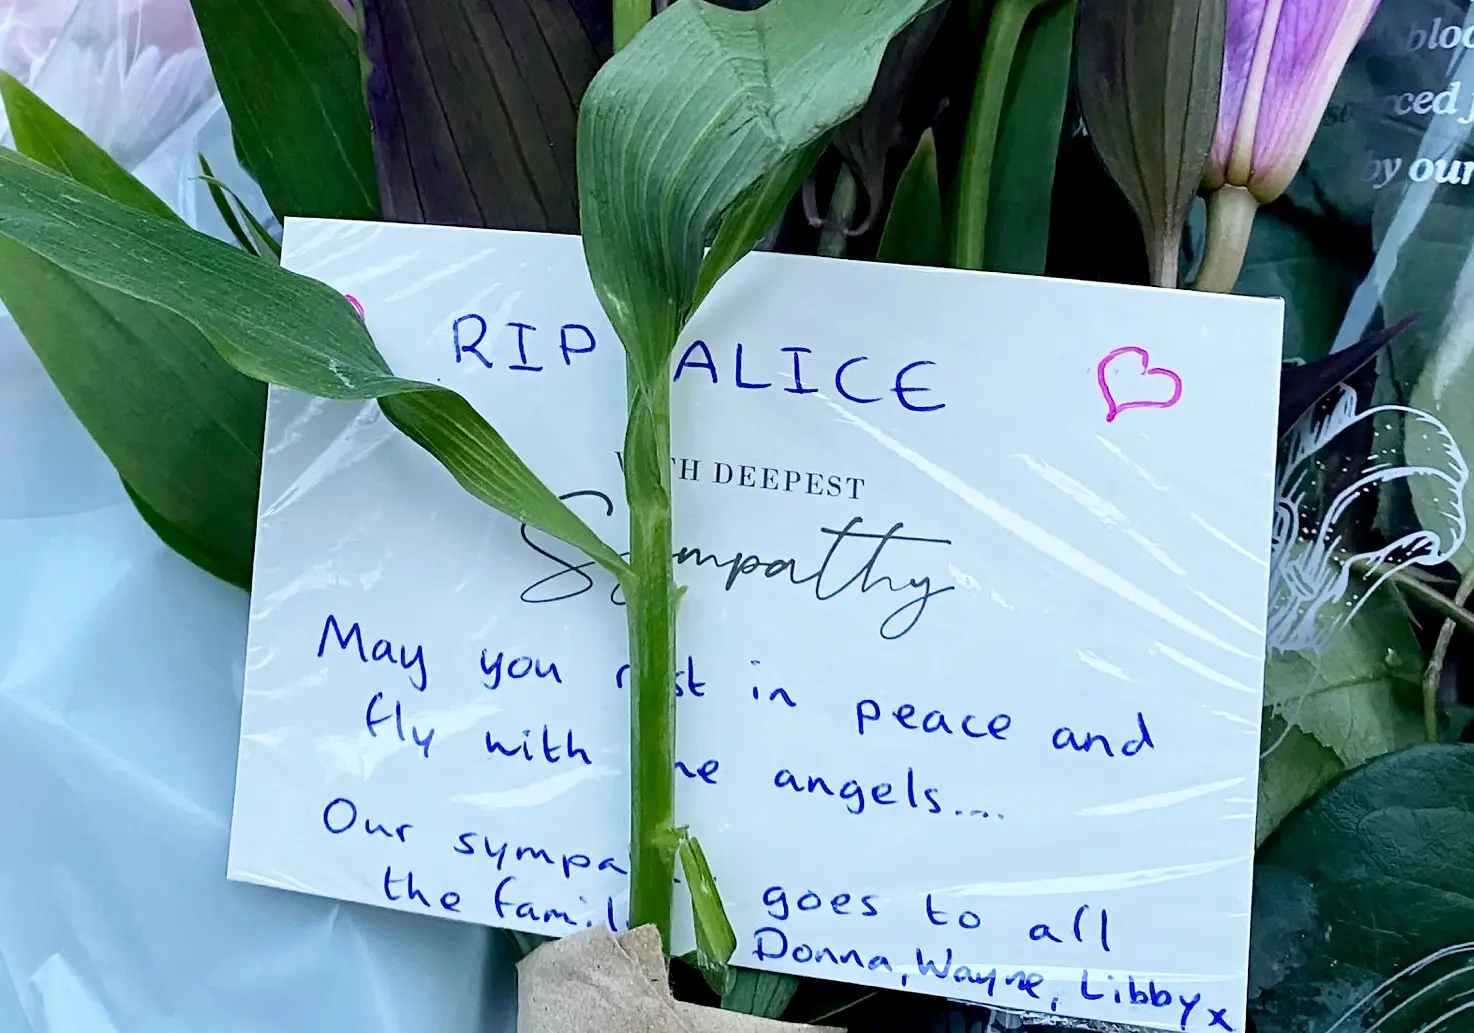 RIP ALICE
WITH DEEPEST
Sympathy
May you rest in peace and
fly with the angels....
Our sympathy goes to all
the family
Donna, Wayne, Libby x
ced
by our